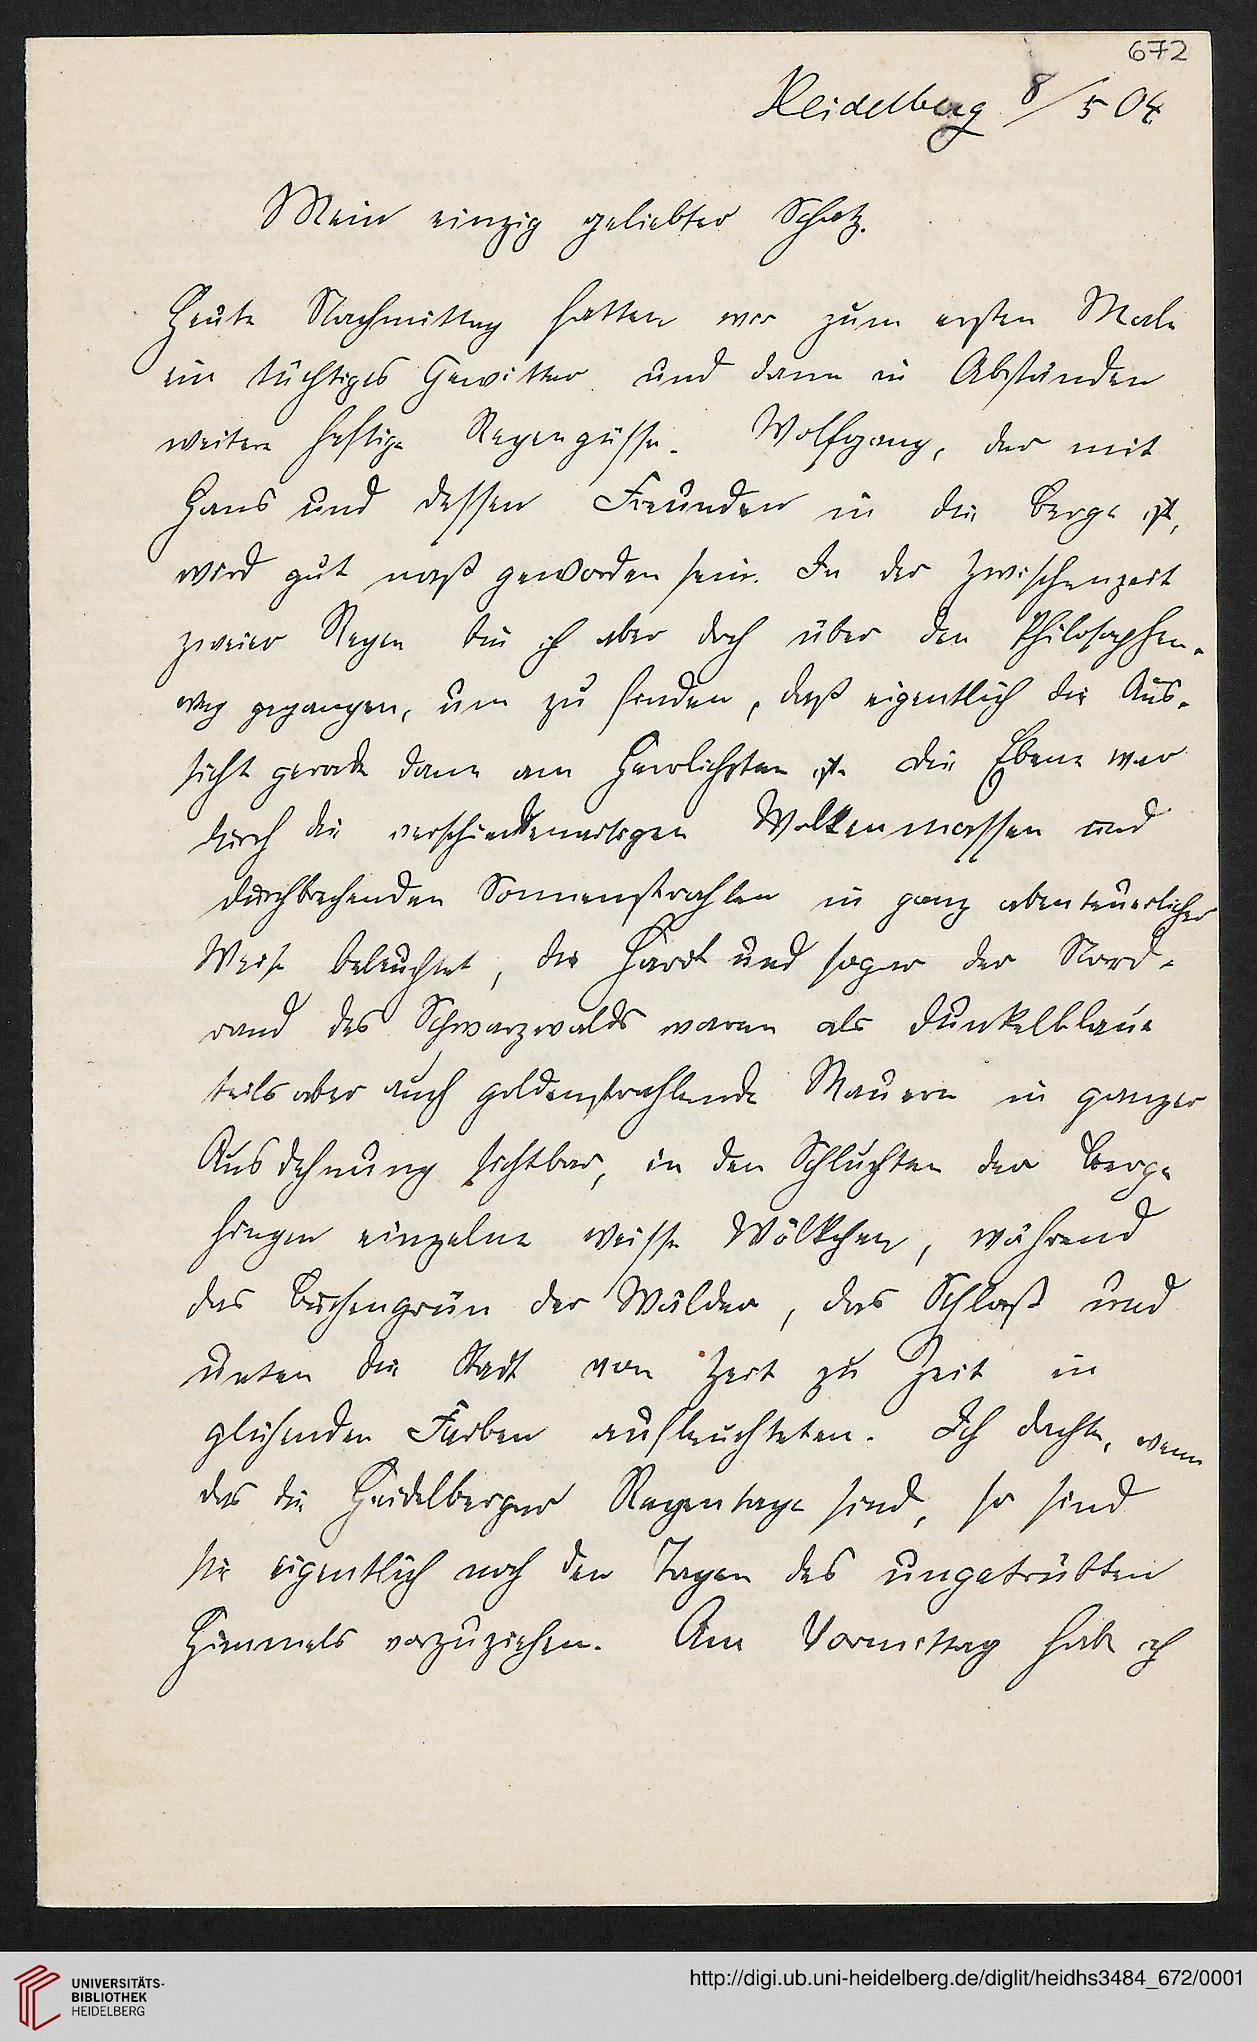 672
Heidelberg 8/5 04
Mein einzig geliebter Schatz.
Heute Nachmittag hatten wir zum ersten Male
ein tüchtiges Gewitter und dann in Abständen
weitere heftige Regengüsse. Wolfgang, der mit
Hans und dessen Freunden in die Berge ist,
wird gut naß geworden sein. In der Zwischenzeit
zweier Regen bin ich aber doch über den Philosophen-
weg gegangen, um zu finden, daß eigentlich die Aus-
sicht gerade dann am Herrlichsten ist. Die Ebene war
durch die verschiedenartigen Wolkenmassen und
durchbrechenden Sonnenstrahlen in ganz abenteuerlicher
Weise beleuchtet, die Hardt und sogar der Nord-
rand des Schwarzwalds waren als dunkelblaue
teils aber auch goldenstrahlende Mauern in ganzer
Ausdehnung sichtbar, in den Schluchten der Berge
hingen einzelne weisse Wölkchen, während
das Buchengrün der Wälder, das Schloß und
unten die Stadt von Zeit zu Zeit in
glühenden Farben aufleuchteten. Ich dachte, wenn
das die Heidelberger Regentage sind, so sind
sie eigentlich noch den Tagen des ungetrübten
Himmels vorzuziehen. Am Vormittag habe ich
UNIVERSITÄTS-
BIBLIOTHEK
HEIDELBERG
http://digi.ub.uni-heidelberg.de/diglit/heidhs3484_672/0001